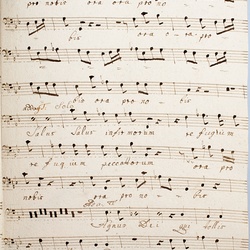 pro nobis ora ora pro no
bis ora ora pro
nobis ora pro no bis
Salus Salus infirmorum re fugium
re fugium peccatorum ora pro
nobis ora pro no bis
Agnus Dei qui tollis